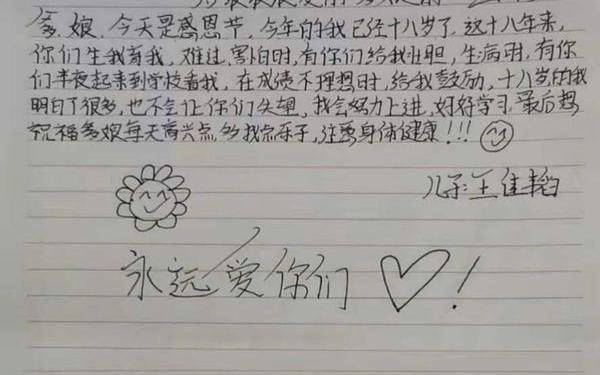 爹、娘,今天是感恩节,今年的我已经十八岁了,这十八年来,
你们生我育我,难过、害怕时,有你们给我壮胆,生病时,有你
们半夜起来到学校看我,在成绩不理想时,给我鼓励,十八岁的我
明白了很多,也不会让你们失望,我会努力上进,好好学习,最后想
祝福爹娘每天高兴点,多找点乐子,注意身体健康!!!
儿子:王佳韬
永远爱你们!